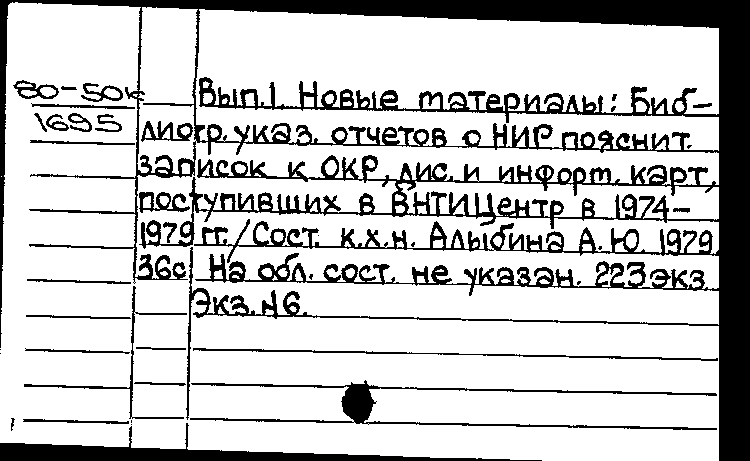 80-50к
1695
Вып.1. Новые материалы: Биб-
лиогр. указ. отчетов о НИР пояснит.
записок к ОКР, дис. и информ. карт,
поступивших в ВНТИЦентр в 1974-
1979 гг./Сост. к.х.н. Алыбина А.Ю. 1979.
36с На обл. сост. не указан. 223 экз.
Экз. №6.